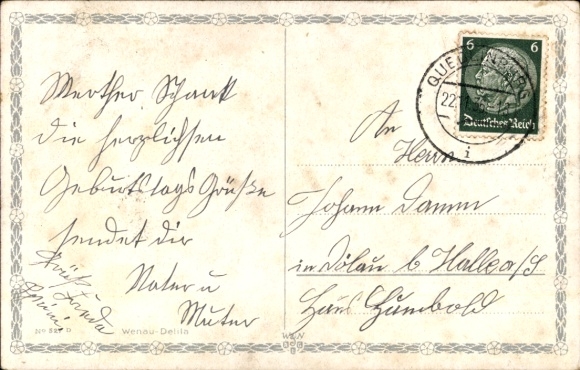 Werther Schatz
die herzlichsen
Geburtstags Grüße
sendet dir
Vater u
Mutter
Grüß Tante
No 527 D Wenau-Delila
6 6
Deutsches Reich
QUEDLINBURG
22.
i
An
Herrn
Johann Damm
in Dölau b Halle a/S
Haus Humbold